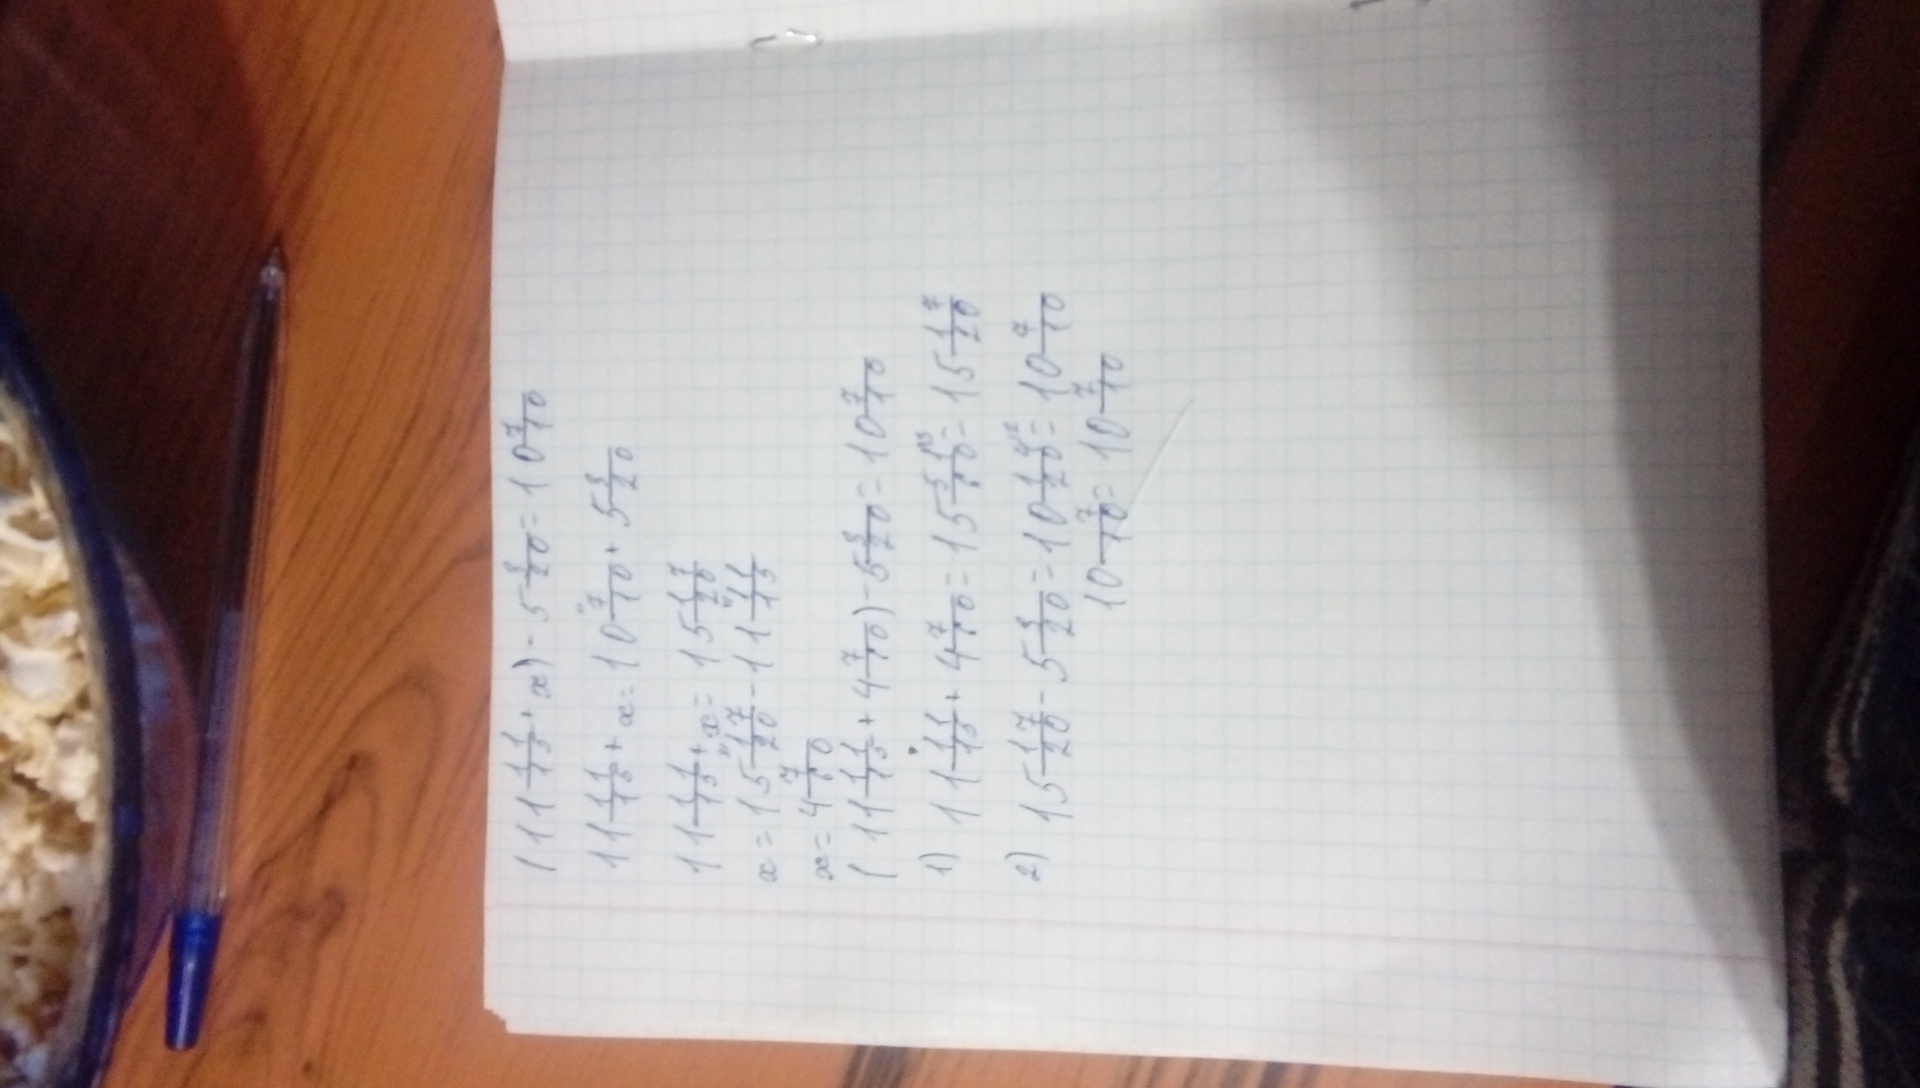 (11 11/15 + x) - 5 3/20 = 10 7/10
11 11/15 + x = 10 7/10 + 5 3/20
11 11/15 + x = 15 17/20
x = 15 17/20 - 11 11/15
x = 4 7/60
(11 11/15 + 4 7/60) - 5 3/20 = 10 7/10
1) 11 11/15 + 4 7/60 = 15 51/60 = 15 17/20
2) 15 17/20 - 5 3/20 = 10 14/20 = 10 7/10
10 7/10 = 10 7/10